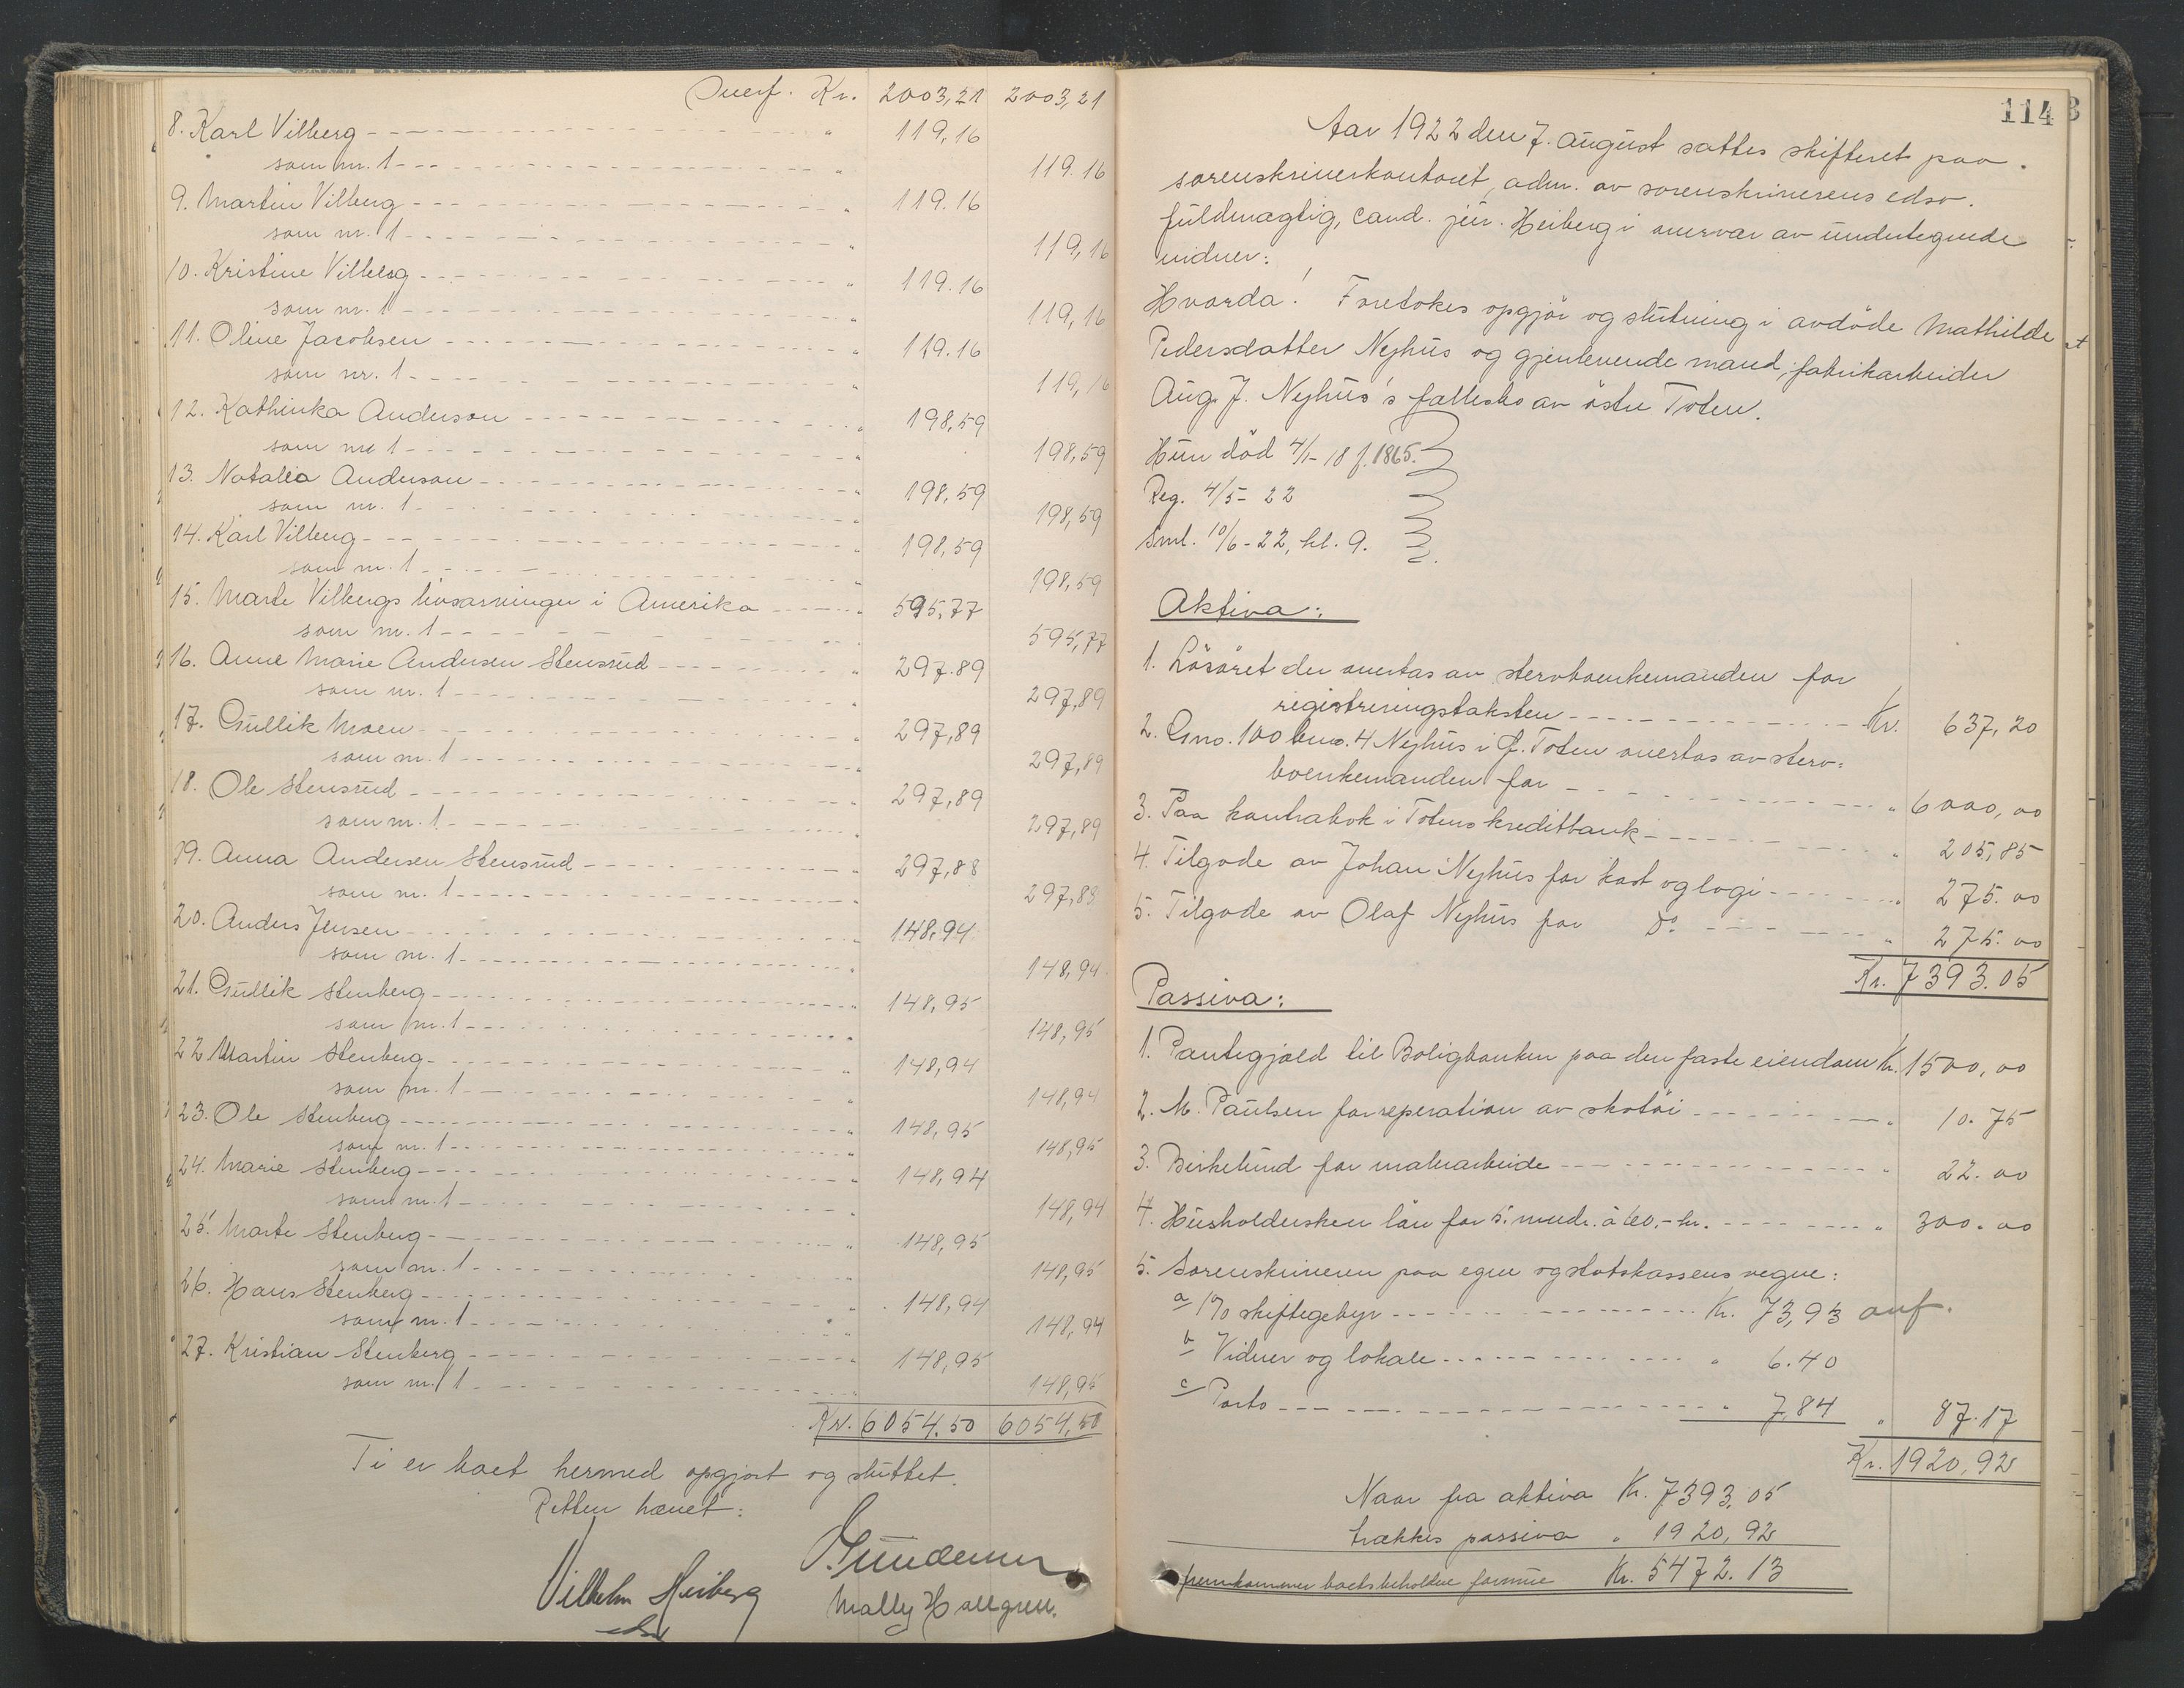 Overf. Kr. 2003,21 2003,21
8. Karl Vilberg " 119,16
som nr. 1 " 119.16
9. Martin Vilberg " 119.16
som nr. 1 " 119,16
10. Kristine Vilberg " 119.16
som nr. 1 " 119,16
11. Oline Jacobsen " 119.16
som nr. 1 " 119,16
12. Kathinka Anderson " 198,59
som nr 1 " 198,59
13. Natalia Anderson " 198,59
som nr. 1 " 198,59
14. Karl Vilberg " 198,59
som nr. 1 " 198,59
15. Marte Vilbergs livsarvinger i Amerika " 595,77
som nr. 1 " 595,77
16. Anne Marie Andersen Stensrud " 297.89
som nr. 1 " 297,89
17. Gullik Moen " 297,89
som nr. 1 " 297,89
18. Ole Stensrud " 297,89
som nr. 1 " 297,89
19. Anna Andersen Stensrud " 297,88
som nr. 1 " 297,88
20. Anders Jensen " 148,94
som nr. 1 " 148,94
21. Gullik Stenberg " 148,95
som nr. 1 " 148,95
22 Martin Stenberg " 148,94
som nr. 1 " 148,94
23. Ole Stenberg " 148,95
som nr. 1 " 148,95
24. Marie Stenberg " 148,94
som nr. 1 " 148,94
25. Marte Stenberg " 148,95
som nr. 1 " 148,95
26. Hans Stenberg " 148,94
som nr. 1 " 148,94
27. Kristian Stenberg " 148,95
som nr. 1 " 148,95
Kr. 6054.50 6054,50
Ti er boet hermed opgjort og sluttet.
Retten hævet:
Vilhelm Heiberg
Mally Hallgren.
114
Aar 1922 den 7. august sattes skifteret paa
sorenskriverkontoret, adm. av sorenskriverens edsv.
fuldmægtig, cand. jur. Heiberg i overvær av undertegnede
vidner:
Hvorda! Foretokes opgjör og slutning i avdöde Mathilde
Pedersdatter Nyhus og gjenlevende mand, fabrikarbeider
Aug. J. Nyhus's fællesbo av östre Toten.
Hun död 4/1-18 f. 1865.
Reg. 4/5- 22
Saml. 10/6-22, kl. 9.
Aktiva:
1. Lösöret der overtas av stervboenkemanden for
registreringstaksten Kr. 637,20
2. Gno. 100 bno. 4 Nyhus i Ö. Toten overtas av sterv=
boenkemanden for " 6000,00
3. Paa kontrabok i Totens kreditbank " 205,85
4. Tilgode av Johan Nyhus for kost og logi " 275.00
5. Tilgode av Olaf Nyhus for do " 275.00
Kr. 7393.05
Passiva:
1. Pantegjæld til Boligbanken paa den faste eiendom Kr. 1500,00
2. M. Paulsen for reperation av skotöi " 10.75
3. Birkelund for malerarbeide " 22.00
4. Husholdersken lön for 5 mndr. à 60.- kr. " 300.00
5. Sorenskriveren paa egne og statskassens vegne:
a 1% skiftegebyr Kr. 73,93 anf.
b Vidner og lokale " 6.40
c Porto " 7,84 " 87.17
Kr. 1920,92
Naar fra aktiva Kr. 7393.05
trækkes passiva " 1920,92
fremkommer boets beholdne formue Kr. 5472.13